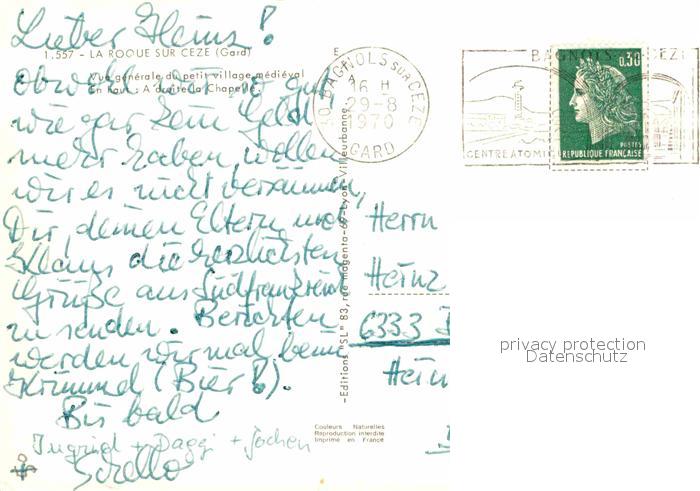 Lieber Heinz!
1.557 - LA ROQUE SUR CEZE (Gard)
Vue générale du petit village médiéval
En haut : A droite la Chapelle.
obwohl wir so gut
wie gar kein Geld
mehr haben, wollen
wir es nicht versäumen,
Dir, deinen Eltern und
Klaus die herzlichsten
Grüße aus Südfrankreich
zu senden. Berichten
werden wir mal beim
Krümmel (Bier!).
Bis bald
Ingrid + Daggi + Jochen
30 BAGNOLS SUR CEZE
16 H
29-8
1970
GARD
BAGNOLS CEZE
CENTRE ATOMI
0,30
POSTES
REPUBLIQUE FRANÇAISE
-Editions "SL" 83, rue magenta-69-Lyon-Villeurbanne
Herrn
Heinz
6333
privacy protection
Datenschutz
Couleurs Naturelles
Reproduction interdite
Imprimé en France